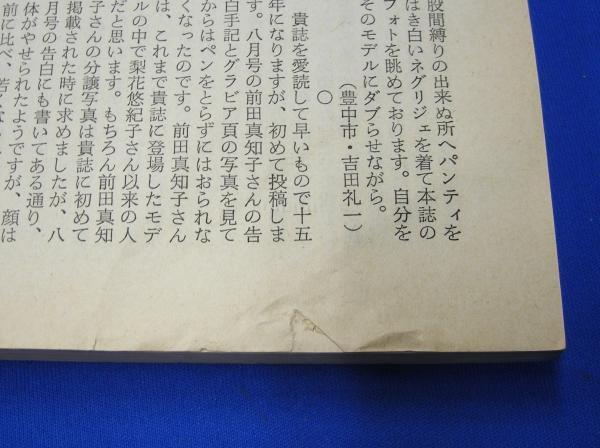 股間縛りの出来ぬ所へパンティを
はき白いネグリジェを着て本誌の
フォトを眺めております。自分を
そのモデルにダブらせながら。
(豊中市・吉田礼一)
○
貴誌を愛読して早いもので十五
年になりますが、初めて投稿しま
す。八月号の前田真知子さんの告
白手記とグラビア頁の写真を見て
からはペンをとらずにはおられな
くなったのです。前田真知子さん
は、これまで貴誌に登場したモデ
ルの中で梨花悠紀子さん以来の人
だと思います。もちろん前田真知
子さんの分譲写真は貴誌に初めて
掲載された時に求めましたが、八
月号の告白にも書いてある通り、
体がやせられたようですが、顔は
前に比べ、若々